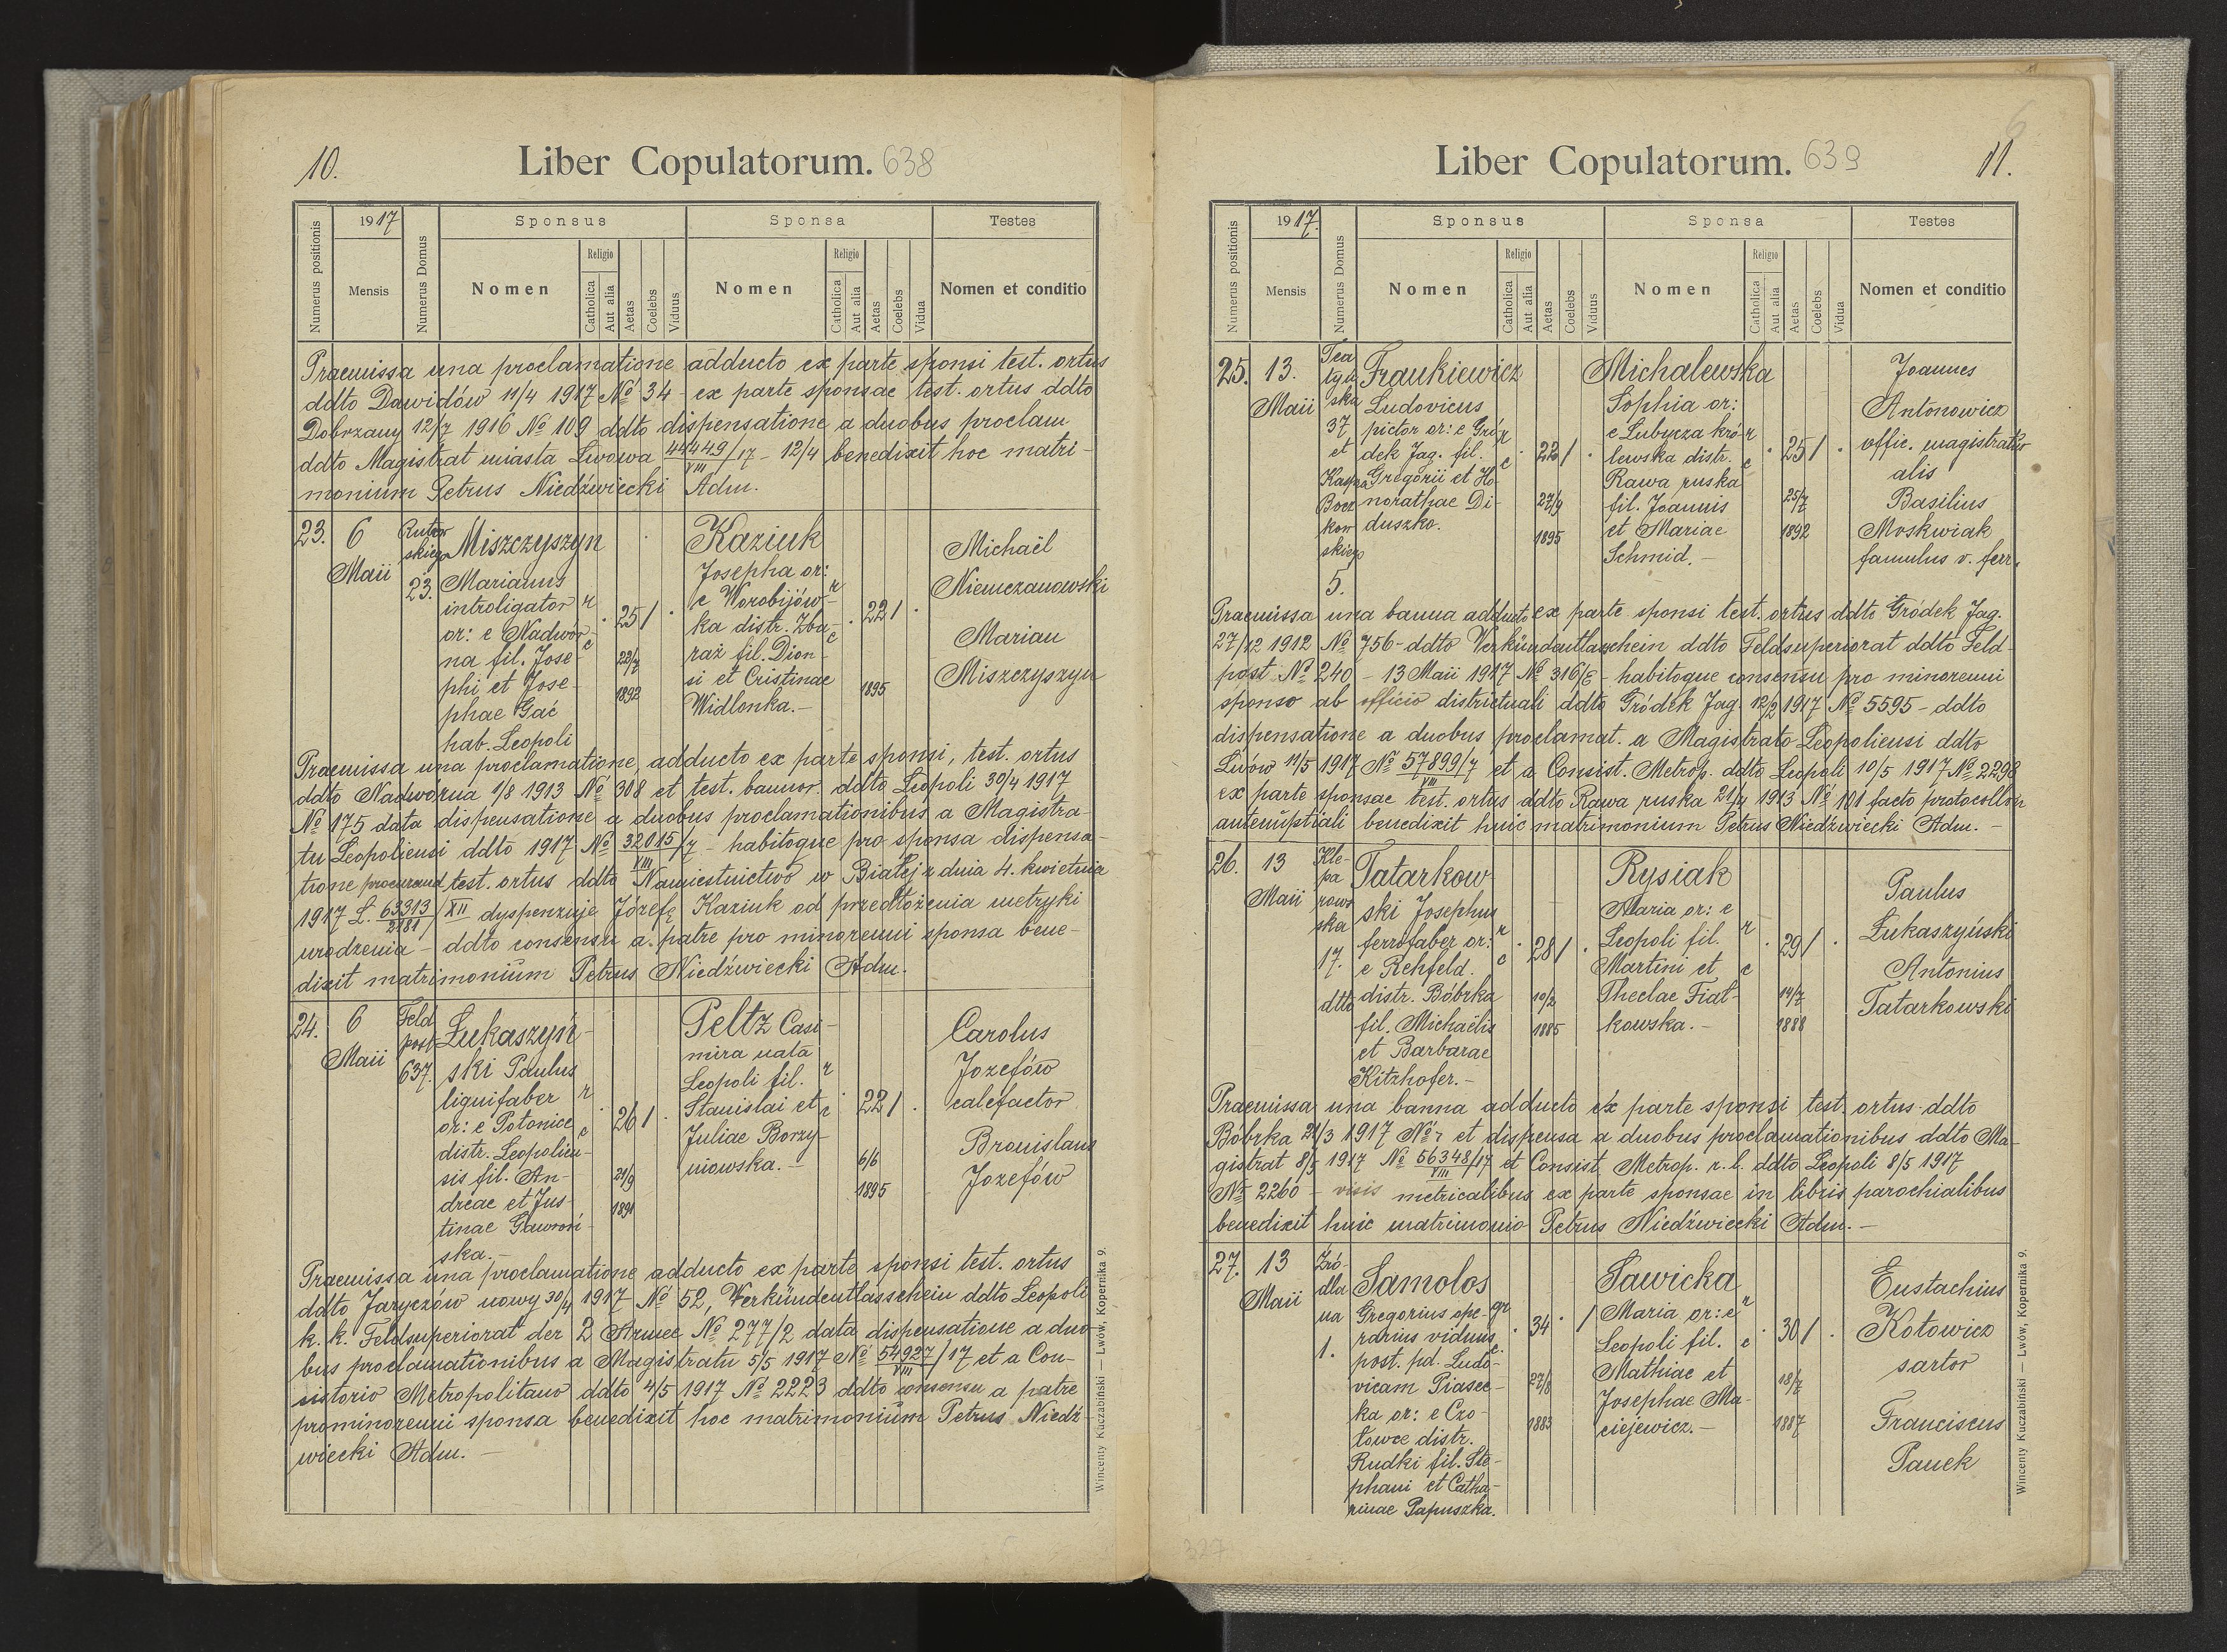 10.
Liber Copulatorum. 638
Numerus positionis
1917
Mensis
Numerus Domus
Sponsus
Nomen
Religio
Catholica
Aut alia
Aetas
Coelebs
Viduus
Sponsa
Nomen
Religio
Catholica
Aut alia
Aetas
Coelebs
Vidua
Testes
Nomen et conditio
Praemissa una proclamatione adducto ex parte sponsi test. ortus
ddto Dawidów 11/4 1917 No 34 - ex parte sponsae test. ortus ddto
Dobrzany 12/7 1916 No 109 ddto dispensatione a duobus proclam
ddto Magistrat miasta Lwowa 44449/VIII/17 - 12/4 benedixit hoc matri-
monium Petrus Niedźwiecki Adm.
23. 6 Maii
Rutowskiego 23.
Miszczyszyn
Marianus
introligator
or: e Nadwór-
na fil. Jose-
phi et Jose-
phae Gać
hab. Leopoli
r c
25 /
22/7
1892
Kaziuk
Josepha or:
e Worobijów-
ka distr. Zba-
raż fil. Dion-
si et Cristinae
Widlonka.-
r c
22 /
1895
Michaël
Niemczanowski
Marian
Miszczyszyn
Praemissa una proclamatione, adducto ex parte sponsi, test. ortus
ddto Nadworna 1/8 1913 No 308 et test. bannor. ddto Leopoli 30/4 1917
No 175 data dispensatione a duobus proclamationibus a Magistra-
tu Leopoliensi ddto 1917 No 32015/VIII/7 - habitoque pro sponsa dispensa-
tione procurand test. ortus ddto Namiestnictwo w Białej z dnia 4. kwietnia
1917 L. 63313/2181/XII dyspenzuje Józefę Kaziuk od przedłożenia metryki
urodzenia - ddto consensu a patre pro minorenni sponsa bene-
dixit matrimonium Petrus Niedźwiecki Adm.
24. 6 Maii
Feldpost 637.
Łukaszyń-
ski Paulus
lignifaber
or: e Potonice
distr. Leopolien-
sis fil. An-
dreae et Jus-
tinae Gawroń-
ska.-
r c
26 /
21/9
1891
Peltz Casi-
mira nata
Leopoli fil.
Stanislai et
Juliae Borzy-
mowska.-
r c
22 /
6/6
1895
Carolus
Jozefów
calefactor
Bronislaus
Jozefów
Praemissa una proclamatione adducto ex parte sponsi test. ortus
ddto Jaryczów nowy 30/4 1917 No 52, Verkündentlasschein ddto Leopoli
k. k. Feldsuperiorat der 2 Armee No 277/2 data dispensatione a duo-
bus proclamationibus a Magistratu 5/5 1917 No 54927/VIII/17 et a Con-
sistorio Metropolitano ddto 4/5 1917 No 2223 ddto consensu a patre
prominorenni sponsa benedixit hoc matrimonium Petrus Niedź-
wiecki Adm. -
Wincenty Kuczabiński — Lwów, Kopernika 9.
11.
Liber Copulatorum. 639
Numerus positionis
1917.
Mensis
Numerus Domus
Sponsus
Nomen
Religio
Catholica
Aut alia
Aetas
Coelebs
Viduus
Sponsa
Nomen
Religio
Catholica
Aut alia
Aetas
Coelebs
Vidua
Testes
Nomen et conditio
25. 13. Maii
37
et
5.
Fraukiewicz
Ludovicus
pictor or: e Gró-
dek Jag. fil.
Gregorii et Ho-
norathae Di-
duszko.
r c
22 /
27/9
1895
Michalewska
Sophia or:
e Lubycza kró-
lewska distr.
Rawa ruska
fil. Joannis
et Mariae
Schmid.-
r c
25 /
25/7
1892
Joannes
Antonowicz
offic. magistratu-
alis
Basilius
Moskwiak
famulus v. ferr.
Praemissa una banna adducto ex parte sponsi test. ortus ddto Gródek Jag.
27/12 1912 No 756 - ddto Verkündentlasschein ddto Feldsuperiorat ddto Feld-
post No 240 - 13 Maii 1917 No 316/E - habitoque consensu pro minorenni
sponso ab officio districtuali ddto Gródek Jag. 12/2 1917 No 5595 - ddto
dispensatione a duobus proclamat. a Magistrato Leopoliensi ddto
Lwów 11/5 1917 No 57899/VIII/7 et a Consist. Metrop. ddto Leopoli 10/5 1917 No 2298
ex parte sponsae test. ortus ddto Rawa ruska 21/4 1913 No 101 facto protocollo
antenuptiali benedixit huic matrimonium Petrus Niedźwiecki Adm. -
26. 13 Maii
Kleparowska
17.
dtto
Tatarkow-
ski Josephus
ferrofaber or:
e Rehfeld.
distr. Bóbrka
fil. Michaëlis
et Barbarae
Kitzhofer.-
r c
28 /
10/2
1885
Rysiak
Maria or: e
Leopoli fil.
Martini et
Theclae Fiał-
kowska.-
r c
29 /
14/7
1888
Paulus
Łukaszyński
Antonius
Tatarkowski
Praemissa una banna adducto ex parte sponsi test. ortus ddto
Bóbrka 21/3 1917 No - et dispensa a duobus proclamationibus ddto Ma-
gistrat 8/5 1917 No 56348/VIII/17 et Consist. Metrop. r. l. ddto Leopoli 8/5 1917
No 2260 - visis metricalibus ex parte sponsae in libris parochialibus
benedixit huic matrimonio Petrus Niedźwiecki Adm. -
27. 13 Maii
Źródlana
1.
Samolos
Gregorius ope-
rarius viduus
post. pd. Ludo-
vicam Piasec-
ka or: e Czo-
łowce distr.
Rudki fil. Ste-
phani et Catha-
rinae Papuszka.
gr c.
34 /
27/8
1883
Sawicka
Maria or: e
Leopoli fil.
Mathiae et
Josephae Ma-
ciejewicz.-
r c
30 /
18/7
1887
Eustachius
Kotowicz
sartor
Franciscus
Panek
Wincenty Kuczabiński — Lwów, Kopernika 9.
327